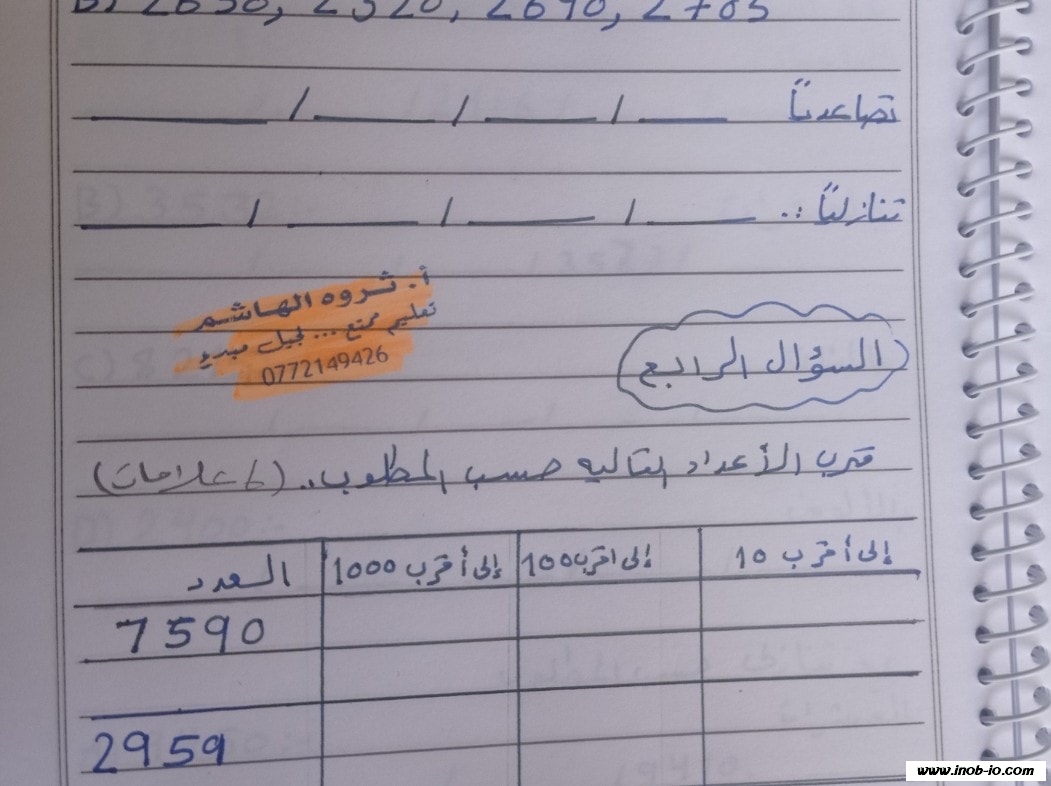 تصاعديًا ____ / ____ / ____ / ____
تنازليًا : ____ / ____ / ____ / ____
أ. ثروه الهاشم
تعليم ممتع ... لجيل مبدع
0772149426
السؤال الرابع
قرب الأعداد التالية حسب المطلوب.. (6 علامات)
إلى أقرب 10 إلى اقرب 100 إلى أقرب 1000 العدد
7590
2959
www.inob-io.com